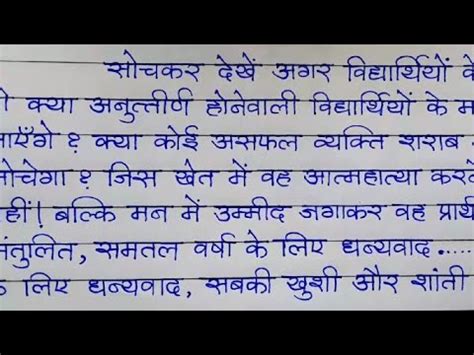 सोचकर देखें अगर विद्यार्थियों के
क्या अनुत्तीर्ण होनेवाली विद्यार्थियों के म
जाएँगे ? क्या कोई असफल व्यक्ति शराब
सोचेगा ? जिस खेत में वह आत्महात्या कर
नहीं ! बल्कि मन में उम्मीद जगाकर वह प्रार्थ
संतुलित, समतल वर्षा के लिए धन्यवाद.....
के लिए धन्यवाद, सबकी खुशी और शांती